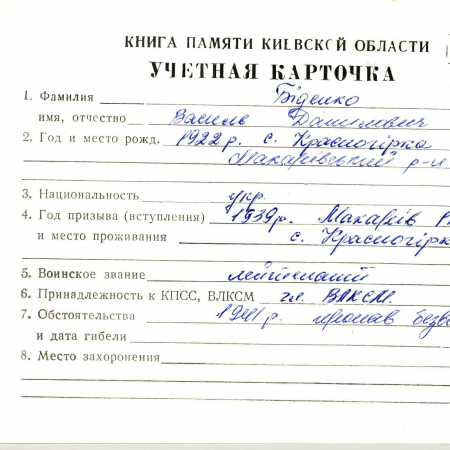 КНИГА ПАМЯТИ КИЕВСКОЙ ОБЛАСТИ
УЧЕТНАЯ КАРТОЧКА
1. Фамилия Біденко
имя, отчество Василь Данилович
2. Год и место рожд. 1922 р. с. Красногірка
Макарівський р-н
3. Национальность укр.
4. Год призыва (вступления) 1939 р. Макарів
и место проживания с. Красногірк
5. Воинское звание лейтенант
6. Принадлежность к КПСС, ВЛКСМ чл. ВЛКСМ.
7. Обстоятельства 1941 р. пропав безв
и дата гибели
8. Место захоронения.